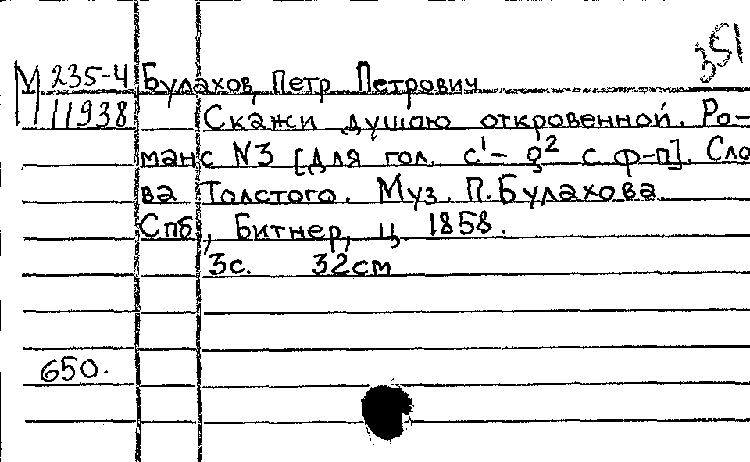 351
М 235-4 Булахов, Петр Петрович
11938 Скажи душою откровенной. Ро-
манс N3 [для гол. c¹- g² с ф-п]. Сло
ва Толстого. Муз. П. Булахова
Спб, Битнер, ц. 1858.
3с. 32см
650.